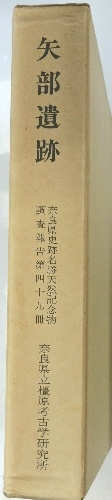 矢部遺跡
奈良県史跡名勝天然記念物
調査報告第四十九冊
奈良県立橿原考古学研究所